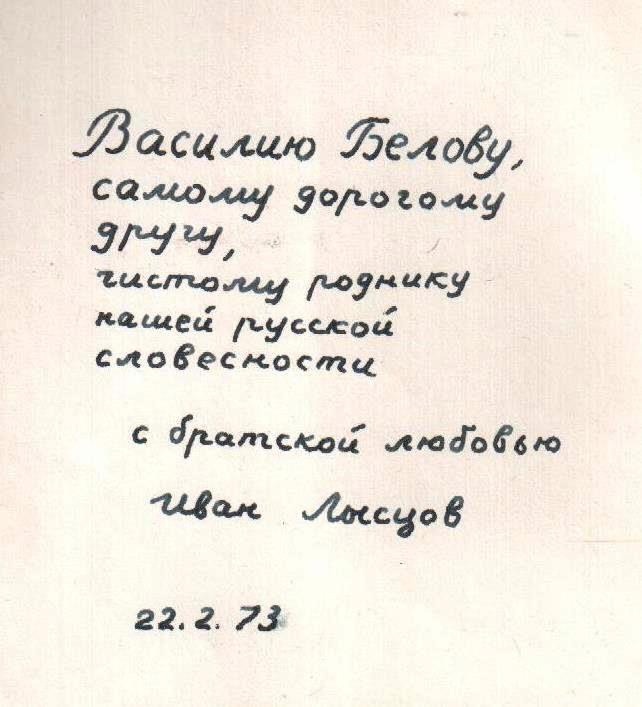 Василию Белову,
самому дорогому
другу,
чистому роднику
нашей русской
словесности
с братской любовью
Иван Лысцов
22.2.73